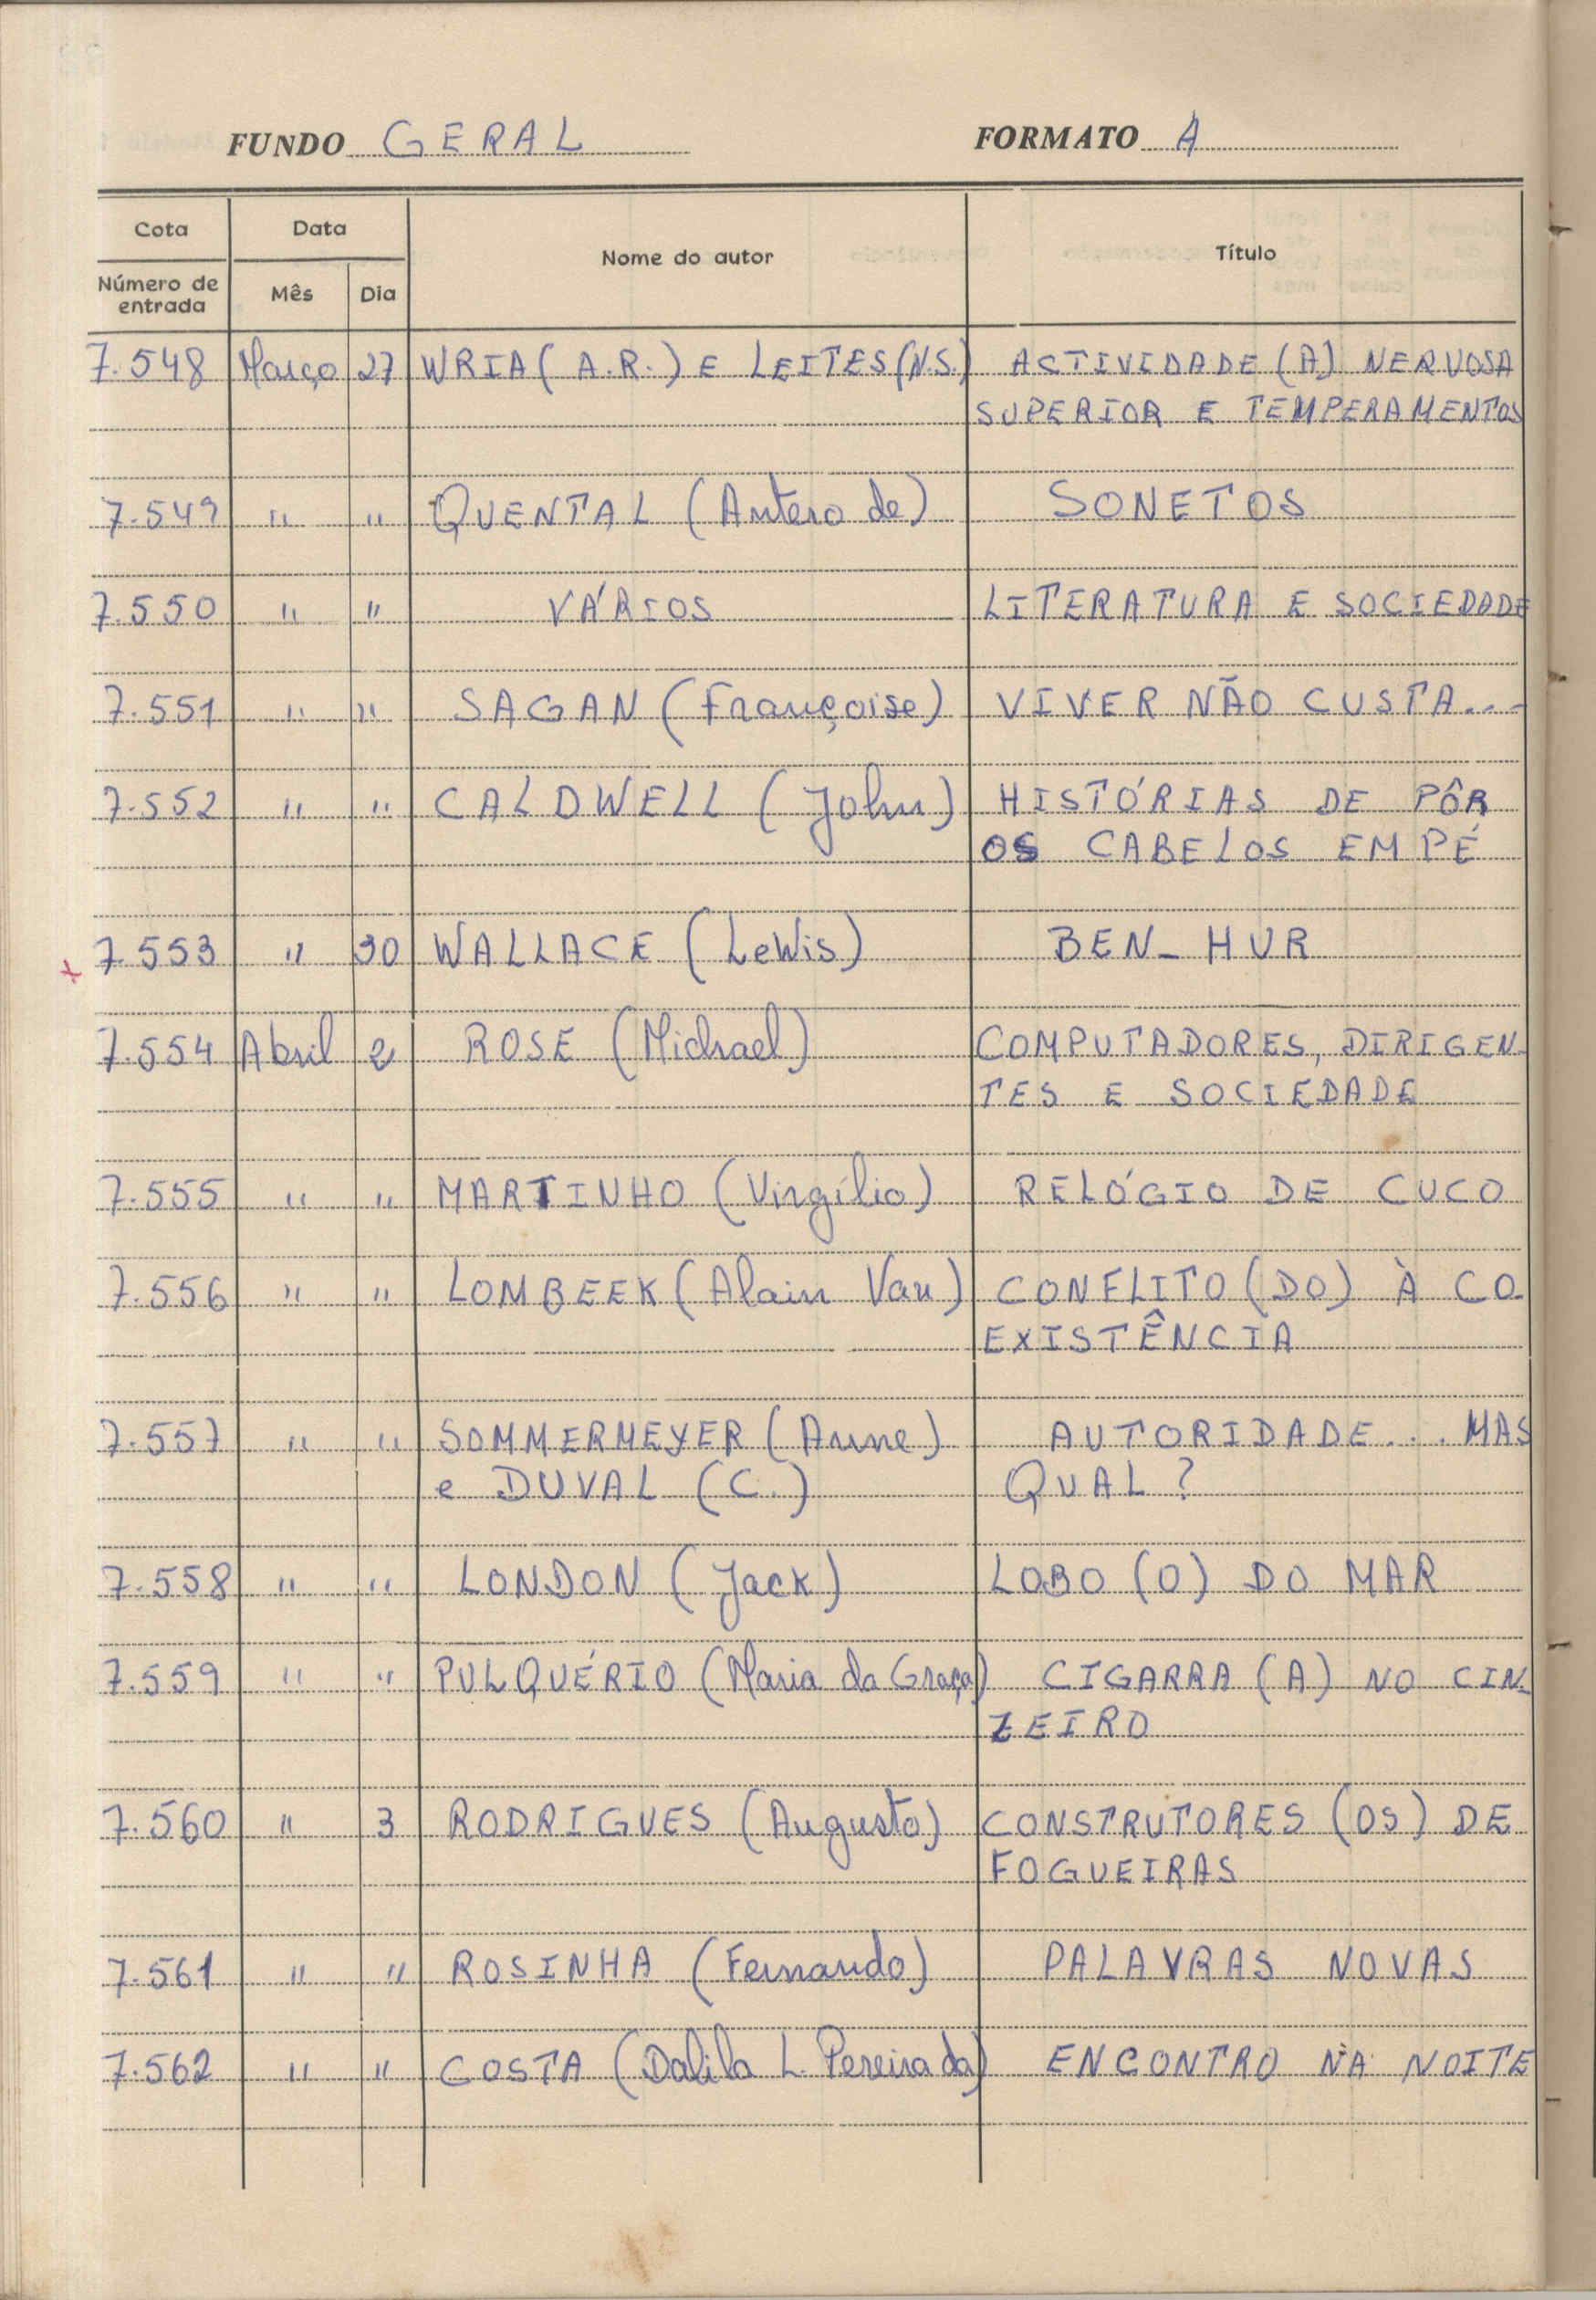 FUNDO GERAL FORMATO A
Cota Data Nome do autor Título
Número de entrada Mês Dia
7.548 Março 27 WRIA (A.R.) E LEITES (N.S.) ACTIVIDADE (A) NERVOSA
SUPERIOR E TEMPERAMENTOS
7.549 " " QUENTAL (Antero de) SONETOS
7.550 " " VÁRIOS LITERATURA E SOCIEDADE
7.551 " " SAGAN (Françoise) VIVER NÃO CUSTA...
7.552 " " CALDWELL (John) HISTÓRIAS DE PÔR
OS CABELOS EM PÉ
x 7.553 " 30 WALLACE (LeWis) BEN-HUR
7.554 Abril 2 ROSE (Michael) COMPUTADORES, DIRIGEN-
TES E SOCIEDADE
7.555 " " MARTINHO (Virgílio) RELÓGIO DE CUCO
7.556 " " LOMBEEK (Alain Van) CONFLITO (DO) À CO-
EXISTÊNCIA
7.557 " " SOMMERMEYER (Anne) AUTORIDADE... MAS
e DUVAL (C.) QUAL?
7.558 " " LONDON (Jack) LOBO (O) DO MAR
7.559 " " PULQUÉRIO (Maria da Graça) CIGARRA (A) NO CIN-
ZEIRO
7.560 " 3 RODRIGUES (Augusto) CONSTRUTORES (OS) DE
FOGUEIRAS
7.561 " " ROSINHA (Fernando) PALAVRAS NOVAS
7.562 " " COSTA (Dalila L. Pereira da) ENCONTRO NA NOITE